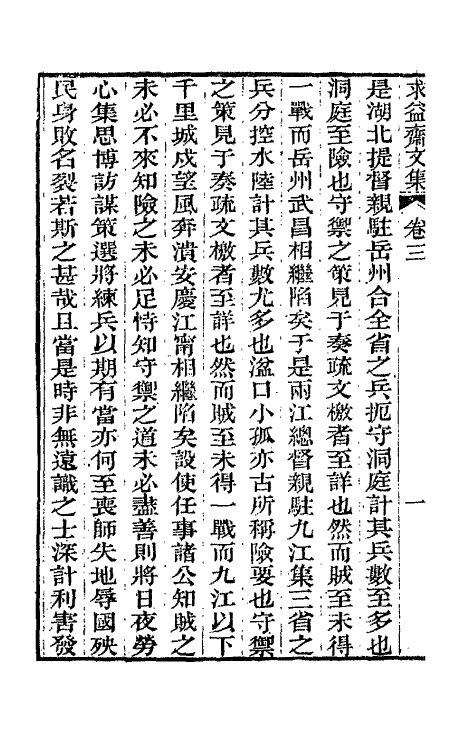 求益齋文集 卷三 一
是湖北提督親駐岳州合全省之兵扼守洞庭計其兵數至多也
洞庭至險也守禦之策見于奏疏文檄者至詳也然而賊至未得
一戰而岳州武昌相繼陷矣于是兩江總督親駐九江集三省之
兵分控水陸計其兵數尤多也湓口小孤亦古所稱險要也守禦
之策見于奏疏文檄者至詳也然而賊至未得一戰而九江以下
千里城戍望風奔潰安慶江甯相繼陷矣設使任事諸公知賊之
未必不來知險之未必足恃知守禦之道未必盡善則將日夜勞
心集思博訪謀策選將練兵以期有當亦何至喪師失地辱國殃
民身敗名裂若斯之甚哉且當是時非無遠識之士深計利害發